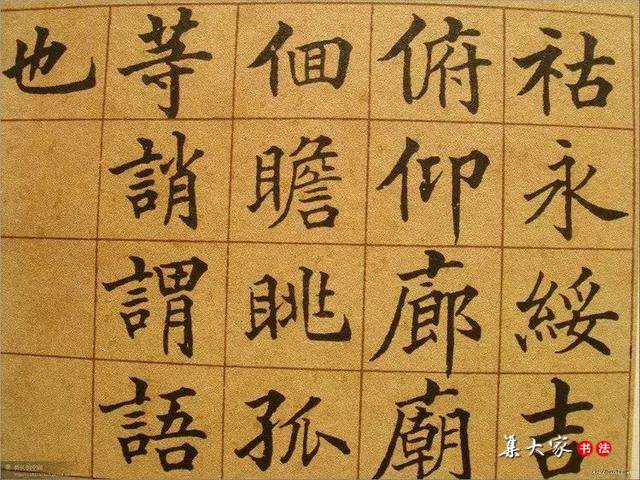 祜永綏吉
俯仰廊廟
佪瞻眺孤
等誚謂語
也
集大家 书法